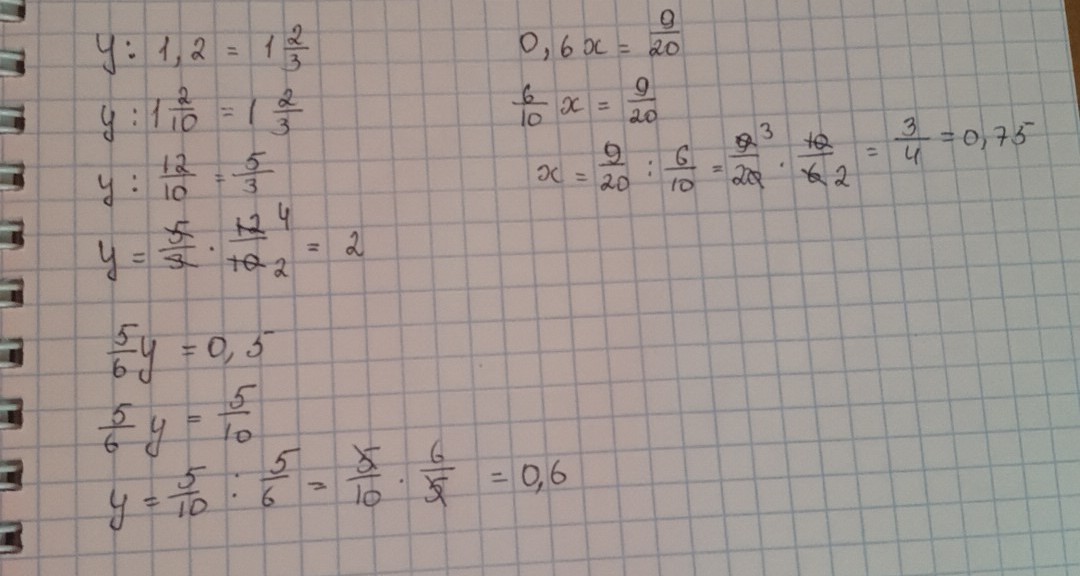 y : 1,2 = 1 2/3
y : 1 2/10 = 1 2/3
y : 12/10 = 5/3
y = 5/3 · 12/10 4 2 = 2
5/6 y = 0,5
5/6 y = 5/10
y = 5/10 : 5/6 = 5/10 · 6/5 = 0,6
0,6x = 9/20
6/10 x = 9/20
x = 9/20 : 6/10 = 9/20 3 · 10/6 2 = 3/4 = 0,75